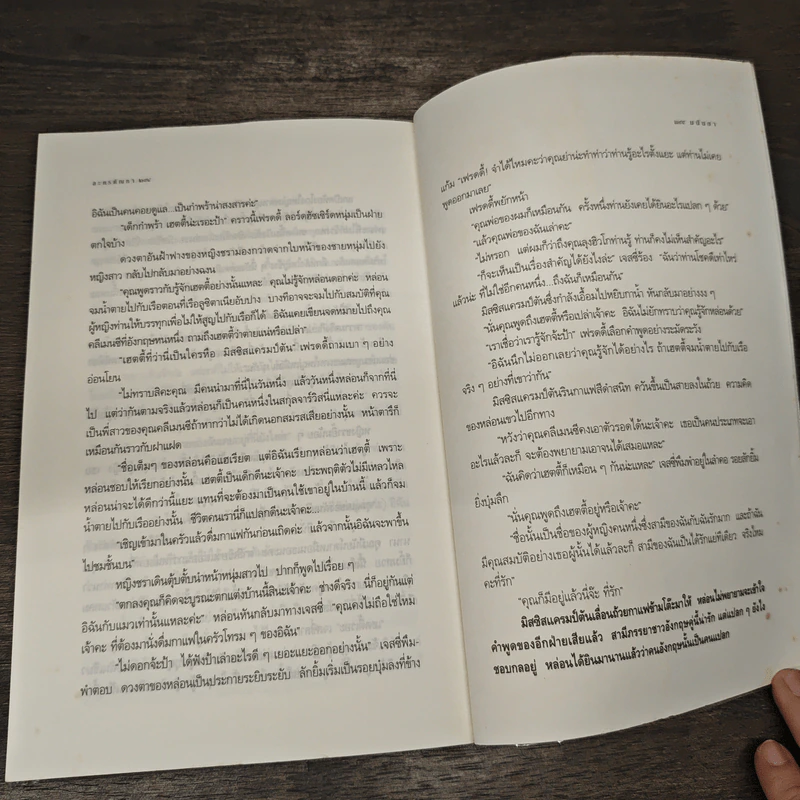 อิฉันเป็นคนคอยดูแล...เป็นกำพร้าน่าสงสารค่ะ"
"เด็กกำพร้า เฮตตี้น่ะเรอะป้า" คราวนี้เฟรดดี้ ลอร์ดฮัซเชิร์ดหนุ่มเป็นฝ่าย
ตกใจบ้าง
ดวงตาอันฝ้าฟางของหญิงชรามองกวาดจากใบหน้าของชายหนุ่มไปยัง
หญิงสาว กลับไปกลับมาอย่างฉงน
"คุณพูดราวกับรู้จักเฮตตี้อย่างนั้นแหละ คุณไม่รู้จักหล่อนดอกค่ะ หล่อน
จมน้ำตายไปกับเรือตอนที่เรือลูซิตาเนียอับปาง บางทีอาจจะจมไปกับสมบัติที่คุณ
ผู้หญิงท่านให้บรรทุกเพื่อไม่ให้สูญไปกับเรือก็ได้ อิฉันเคยเขียนจดหมายไปถึงคุณ
คลีเมนซีที่อังกฤษหนหนึ่ง ถามถึงเฮตตี้ว่าตายแน่หรือเปล่า"
"เฮตตี้ที่ว่านี่เป็นใครหือ มิสซิสแครมป์ตัน" เฟรดดี้ถามเบา ๆ อย่าง
อ่อนโยน
"ไม่ทราบสิคะคุณ มีคนนำมาที่นี่ในวันหนึ่ง แล้ววันหนึ่งหล่อนก็จากที่นี่
ไป แต่ว่ากันตามจริงแล้วหล่อนก็เป็นคนหนึ่งในสกุลจาร์วิสนี่แหละค่ะ ควรจะ
เป็นพี่สาวของคุณคลีเมนซีถ้าหากว่าไม่ได้เกิดนอกสมรสเสียอย่างนั้น หน้าตาธีก็
เหมือนกันราวกับฝาแฝด
"ชื่อเต็มๆ ของหล่อนคือแฮเรียต แต่อิฉันเรียกหล่อนว่าเฮตตี้ เพราะ
หล่อนชอบให้เรียกอย่างนั้น เฮตตี้เป็นเด็กดีนะเจ้าคะ ประพฤติตัวไม่มีเหลวไหล
หล่อนน่าจะได้ดีกว่านี้แยะ แทนที่จะต้องมาเป็นคนใช้เขาอยู่ในบ้านนี้ แล้วก็จม
น้ำตายไปกับเรืออย่างนั้น ชีวิตคนเรานี่ก็แปลกดีนะเจ้าคะ...
"เชิญเข้ามาในครัวแล้วดื่มกาแฟกันก่อนเถิดค่ะ แล้วจากนั้นอิฉันจะพาขึ้น
ไปชมชั้นบน"
หญิงชราเดินตุ้บตั้บนำหน้าหนุ่มสาวไป ปากก็พูดไปเรื่อย ๆ
"ตกลงคุณก็คิดจะบูรณะตกแต่งบ้านนี้สินะเจ้าคะ ช่างดีจริง นี่ก็อยู่กันแต่
อิฉันกับแมวเท่านั้นแหละค่ะ" หล่อนหันกลับมาทางเจสซี่ "คุณคงไม่ถือใช่ไหม
เจ้าคะ ที่ต้องมานั่งดื่มกาแฟในครัวโทรม ๆ ของอิฉัน"
"ไม่ดอกจ้ะป้า ได้ฟังป้าเล่าอะไรดี ๆ เยอะแยะออกอย่างนั้น" เจสซี่พึม-
พำตอบ ดวงตาของหล่อนเป็นประกายระยิบระยับ ลักยิ้มเริ่มเป็นรอยบุ๋มลงที่ข้าง
๒๗๙
แก้ม "เฟรดดี้! จำได้ไหมคะว่าคุณย่าน่ะทำท่าว่าท่านรู้อะไรตั้งแยะ แต่ท่านไม่เคย
พูดออกมาเลย"
เฟรดดี้พยักหน้า
"คุณพ่อของผมก็เหมือนกัน ครั้งหนึ่งท่านยังเคยได้ยินอะไรแปลก ๆ ด้วย"
"แล้วคุณพ่อของฉันล่ะคะ"
"ไม่หรอก แต่ผมก็ว่าถึงคุณลุงฮิวโกท่านรู้ ท่านก็คงไม่เห็นสำคัญอะไร"
"ก็จะเห็นเป็นเรื่องสำคัญได้ยังไงล่ะ" เจสซี่ร้อง "ฉันว่าท่านโชคดีเท่าไหร่
แล้วน่ะ ที่ไม่ใช่อีกคนหนึ่ง...ถึงฉันก็เหมือนกัน"
มิสซิสแครมป์ตันซึ่งกำลังเอื้อมไปหยิบกาน้ำ หันกลับมาอย่างงง ๆ
"นั่นคุณพูดถึงเฮตตี้หรือเปล่าเจ้าคะ อิฉันไม่ยักทราบว่าคุณรู้จักหล่อนด้วย"
"เราเชื่อว่าเรารู้จักจ้ะป้า" เฟรดดี้เลือกคำพูดอย่างระมัดระวัง
"อิฉันนึกไม่ออกเลยว่าคุณรู้จักได้อย่างไร ถ้าเฮตตี้จมน้ำตายไปกับเรือ
จริง ๆ อย่างที่เขาว่ากัน"
มิสซิสแครมป์ตันรินกาแฟสีดำสนิท ควันขึ้นเป็นสายลงในถ้วย ความคิด
ของหล่อนเขวไปอีกทาง
"หวังว่าคุณคลีเมนซีคงเอาตัวรอดได้นะเจ้าคะ เธอเป็นคนประเภทจะเอา
อะไรแล้วละก็ จะต้องพยายามเอาจนได้เสมอแหละ"
"ฉันคิดว่าเฮตตี้ก็เหมือน ๆ กันน่ะแหละ" เจสซี่พึมพำอยู่ในลำคอ รอยลักยิ้ม
ยิ่งบุ๋มลึก
"นั่นคุณพูดถึงเฮตตี้อยู่หรือเจ้าคะ"
"ชื่อนั้นเป็นชื่อของผู้หญิงคนหนึ่งซึ่งสามีของฉันกับฉันรักมาก และถ้าฉัน
มีคุณสมบัติอย่างเธอผู้นั้นได้แล้วละก็ สามีของฉันเป็นได้รักแย่ทีเดียว จริงไหม
คะที่รัก"
"คุณก็มีอยู่แล้วนี่จ๊ะ ที่รัก"
มิสซิสแครมป์ตันเลื่อนถ้วยกาแฟข้ามโต๊ะมาให้ หล่อนไม่พยายามจะเข้าใจ
คำพูดของอีกฝ่ายเสียแล้ว สามีภรรยาชาวอังกฤษคู่นี้น่ารัก แต่แปลก ๆ ยังไง
ชอบกลอยู่ หล่อนได้ยินมานานแล้วว่าคนอังกฤษนั้นเป็นคนแปลก